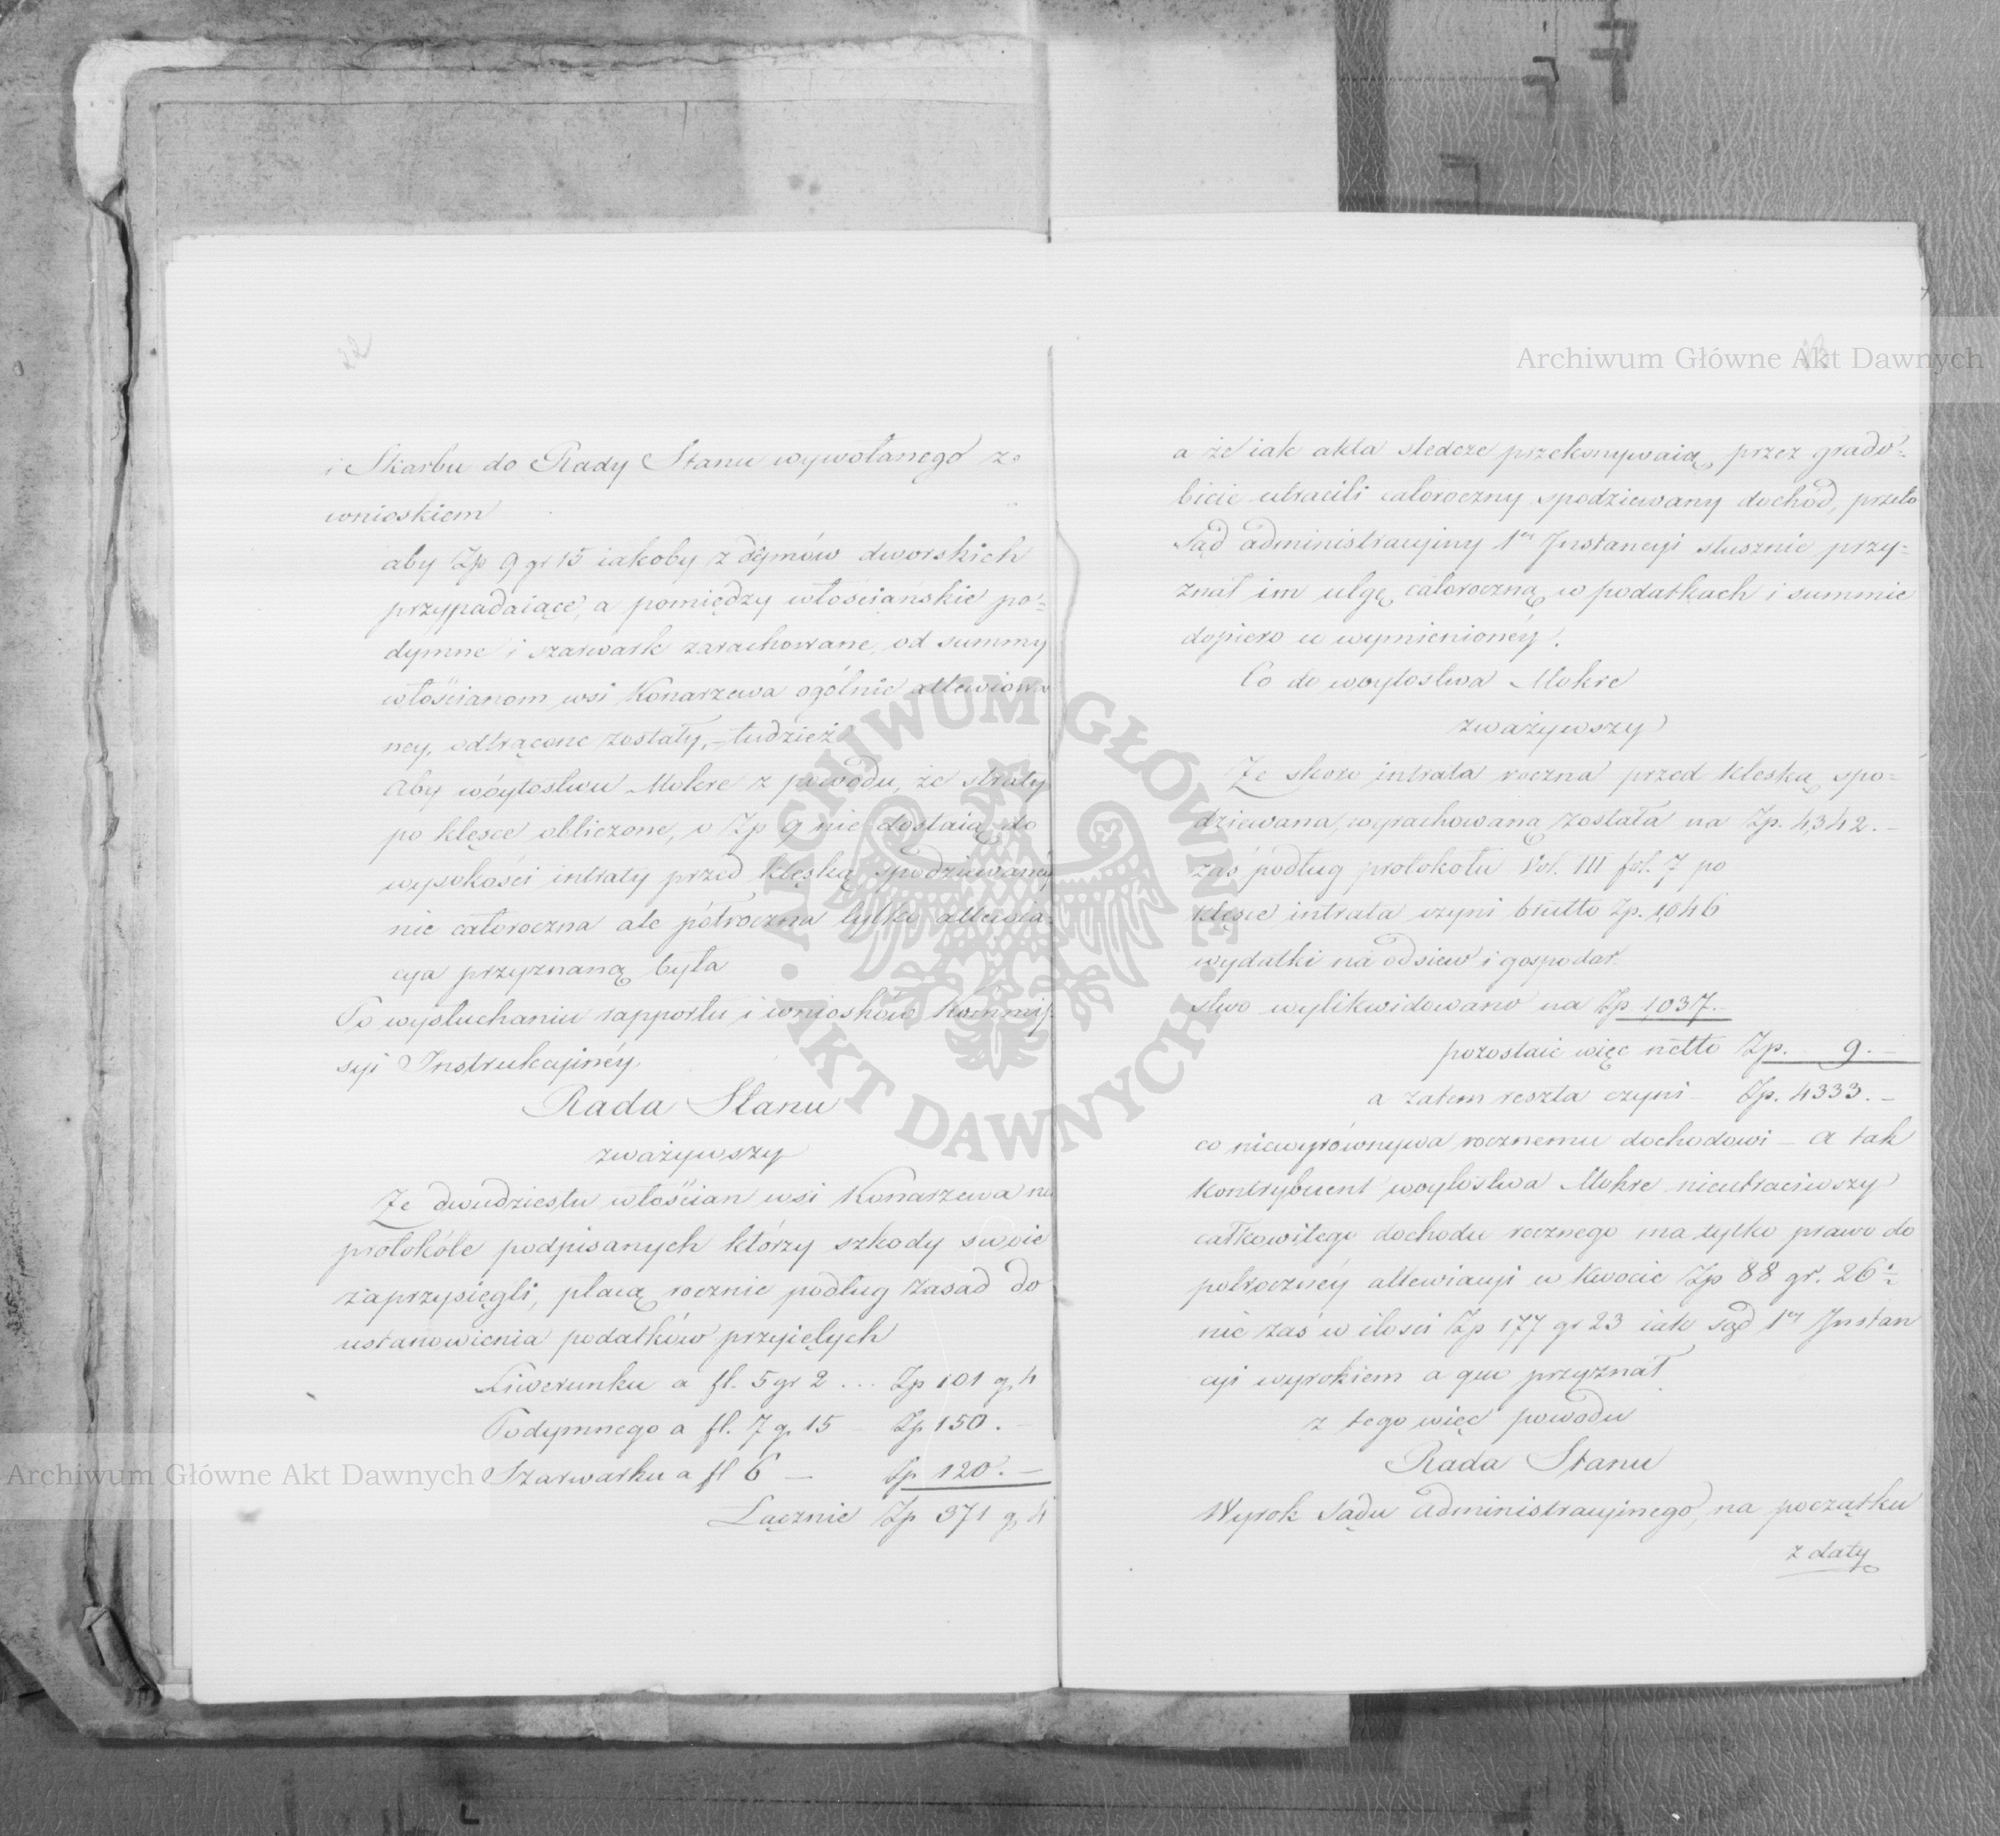 22
i Skarbu do Rady Stanu wywołanego z
wnioskiem
aby Zp 9 gr 15 iakoby z dymów dworskich
przypadaiące, a pomiędzy włościańskie po=
dymne i szarwark zarachowane, od summy
włościanom wsi Konarzewa ogólnie allewiowa
ney, odtrącone zostały, – tudzież
Aby wóytostwu Mokre z powodu, że straty
po klęsce obliczone, o Zp 9 nie dostaią do
wysokości intraty przed klęską spodziewanéy
nie całoroczna ale półroczna tylko allewia=
cya przyznaną była
Po wysłuchaniu rapportu i wniosków Kommis=
syi Instrukcyinéy,
Rada Stanu
zważywszy
Ze dwudziestu włościan wsi Konarzewa na
protokóle podpisanych którzy szkody swoie
zaprzysięgli, płacą rocznie podług zasad do
ustanowienia podatków przyiętych
Liwerunku a fl. 5 gr 2 ... Zp 101 g. 4
Podymnego a fl. 7 g. 15 – Zp 150. –
Szarwarku a fl 6 – Zp 120. –
Łącznie Zp 371 g. 4
a że iak akta śledcze przekonywaią, przez grado=
bicie utracili całoroczny spodziewany dochód, przeto
Sąd administracyiny 1ey Instancyi słusznie przy=
znał im ulgę całoroczną w podatkach i summie
dopiero wymienionéy.
Co do woytostwa Mokre
zważywszy
Ze skoro intrata roczna przed klęską spo=
dziewana, wyrachowaną została na Zp. 4,342. –
zaś podług protokołu Vol. III fol. 7 po
klęsce intrata czyni brutto Zp. 1,046
wydatki na odsiew i gospodar.
stwo wylikwidowano na Zp 1,037. –
pozostaie więc netto Zp. 9. –
a zatem reszta czyni – Zp. 4333. –
co niewyrównywa rocznemu dochodowi – a tak
Kontrybuent woytostwa Mokre nieutraciwszy
całkowitego dochodu rocznego ma tylko prawo do
półrocznéy allewiacyi w kwocie Zp 88 gr. 26 ½
nie zaś w ilości Zp 177 gr 23 iak Sąd 1ey Instan
cyi wyrokiem a quo przyznał
z tego więc powodu
Rada Stanu
Wyrok Sądu Administracyinego, na początku
z daty
Archiwum Główne Akt Dawnych
Archiwum Główne Akt Dawnych
ARCHIWUM GŁÓWNE • AKT DAWNYCH •